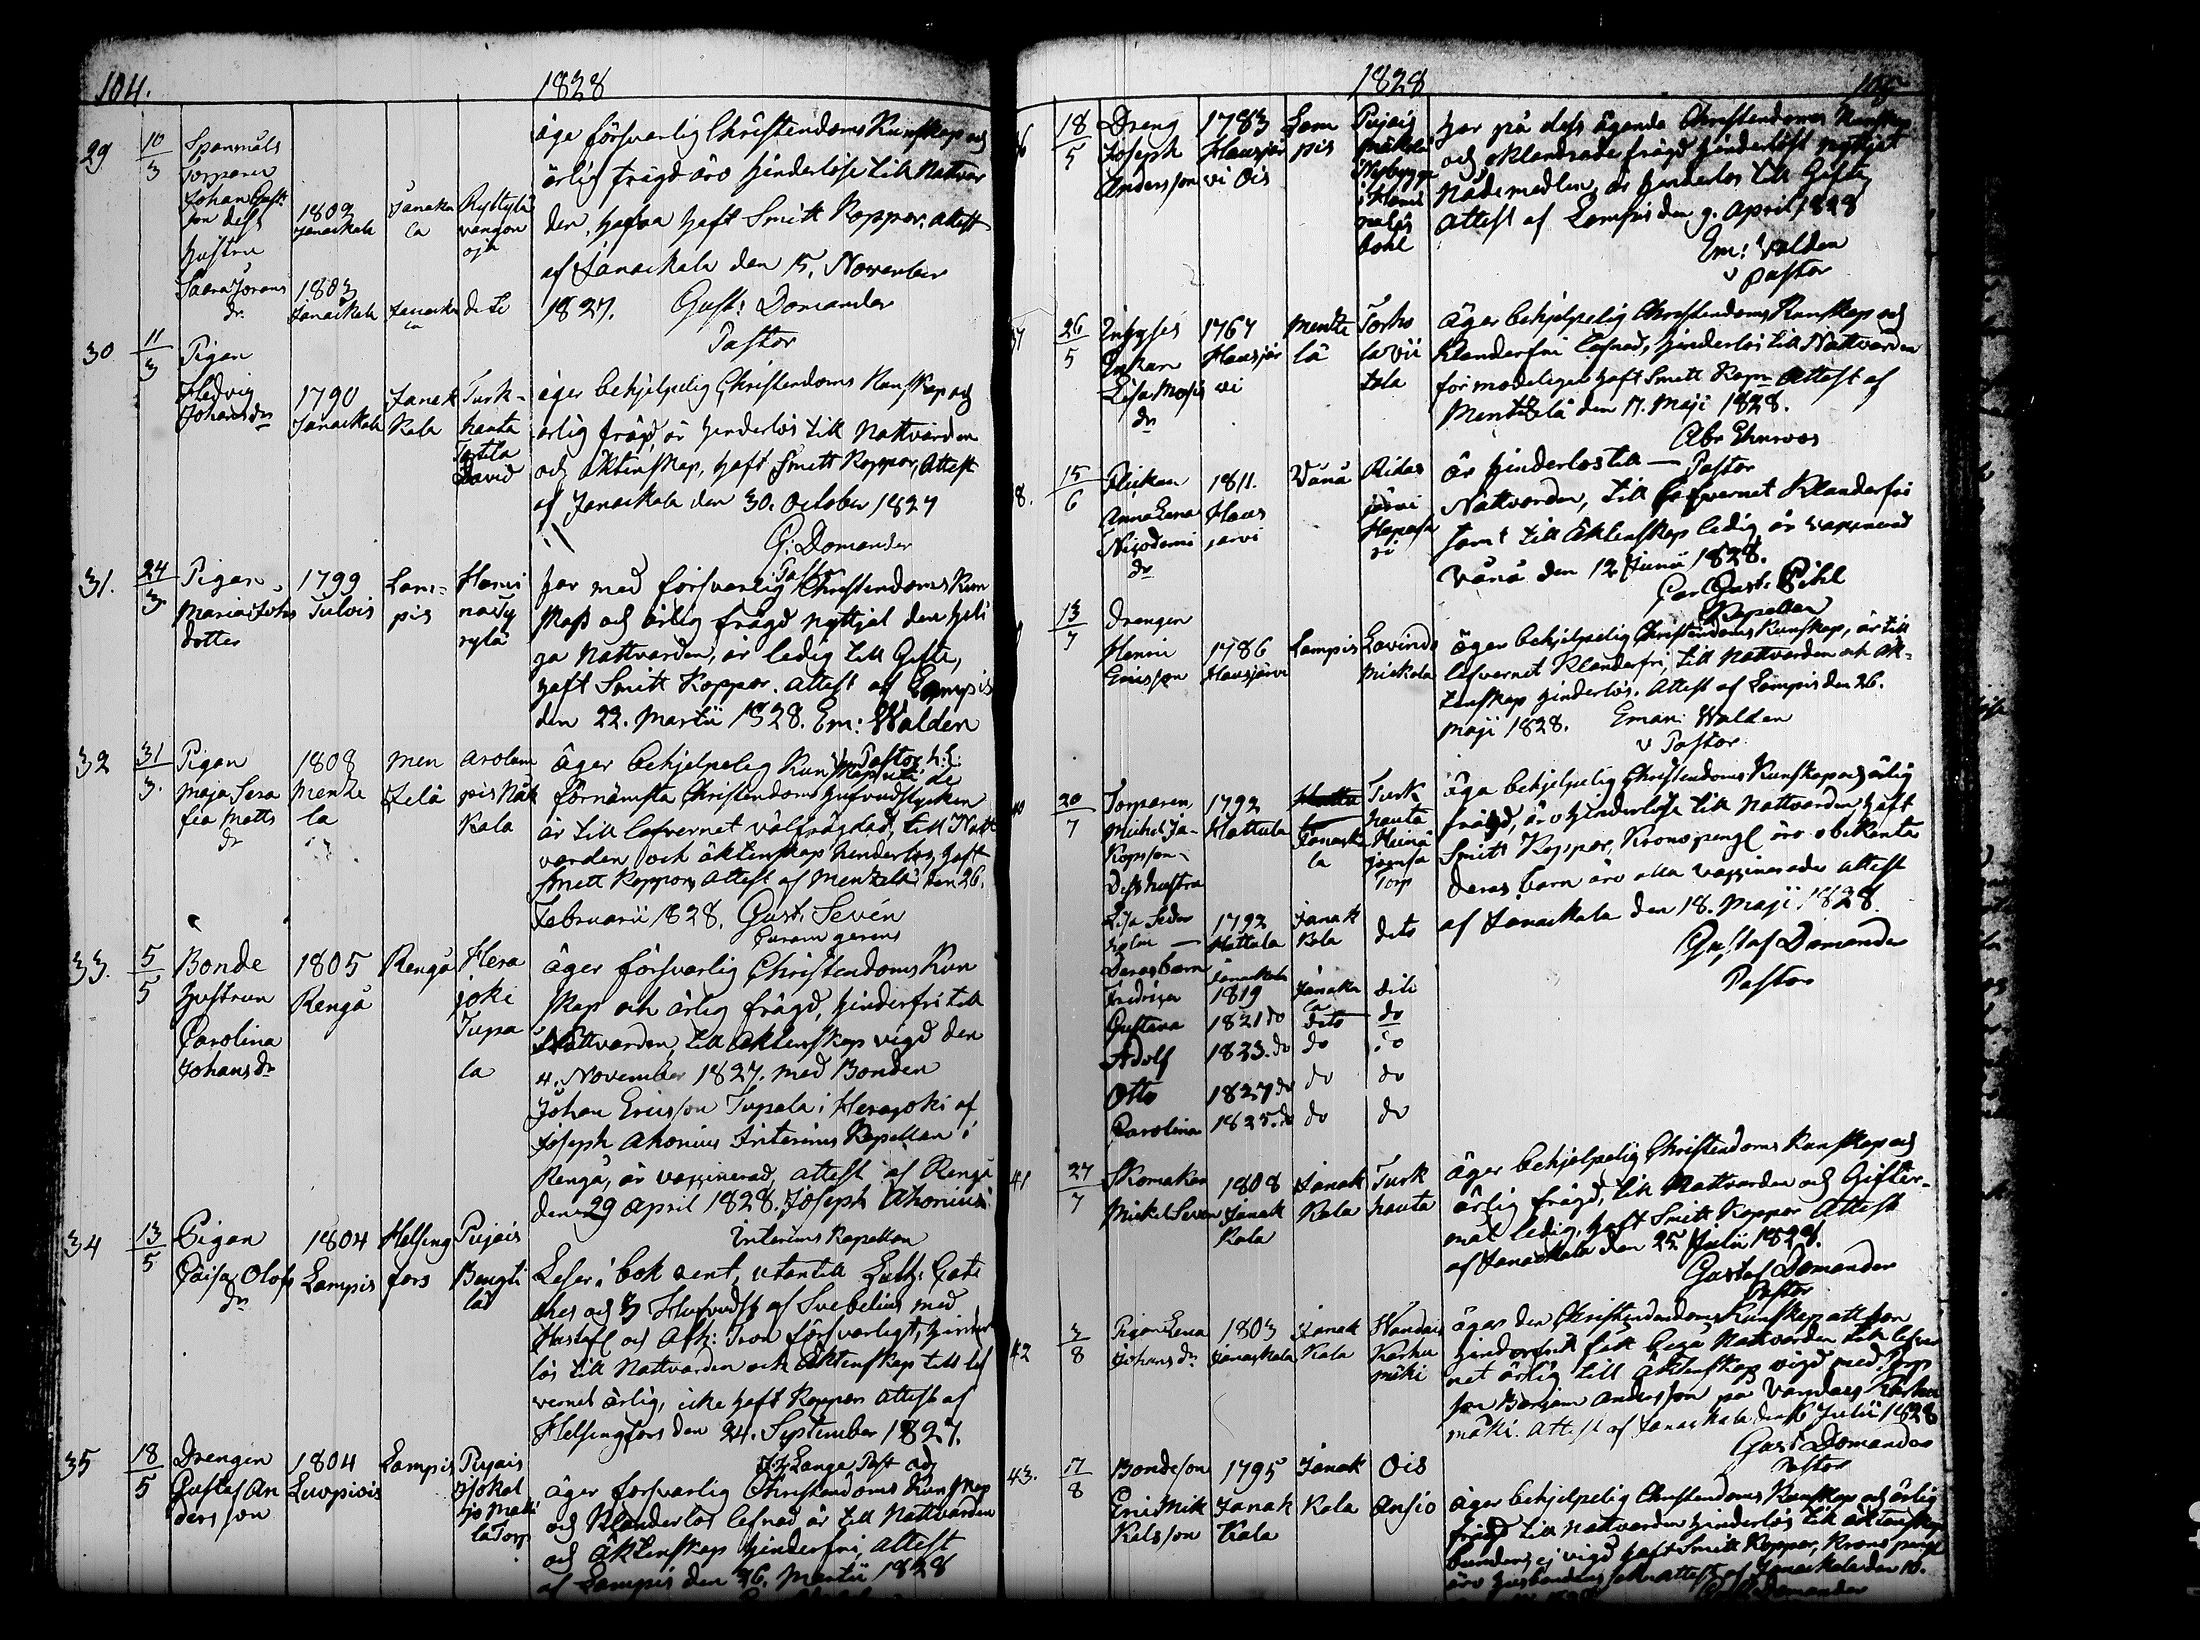 104.
1828
29
10/3
Spanmåls
torparen
Johan Gust:
son dess
hustru
1802
Janackala
Janacka
la
äga försvarlig Christendoms Kunskap och
ärlig frägd äro hinderlöse till Nattvar
den, hafva haft Smitt Koppor. Attest
af Janackala den 15. November
1827. Gust: Domander
Pastor
dr
1803
Janackala
Janacka
la
dito
30
11/3
Pigan
Hedvig
Johansdr
1790
Janackala
Janak
kala
Turk-
hauta
David
äger behjelpelig Christendoms Kunskap och
ärlig frägd, är hinderlös till Nattvarden
och Äktenskap, haft Smitt Koppor, Attest
af Janackala den 30. October 1827
G: Domander
Pastor
31.
24/3
Pigan
Maria Johs
dotter
1799
Tulois
Lam-
pis
har med försvarlig Christendoms Kun
skap och ärlig frägd nyttjat den heli
ga Nattvarden, är ledig till Gifte,
haft Smitt Koppor. Attest af Lampis
den 22. Martii 1828. Em: Walden
32
31/3.
Pigan
Maja Sera
fia Matts
dr
1808
Mentze
la
Men
tzelä
äger behjelpelig Kunskap uti de
förnämsta Christendoms hufvudstycken
är till lefvernet välfrägdad, till Natt
varden och äktenskap hinderlös, haft
Smitt Koppor, Attest af Mentzelä den 26.
Februarii 1828. Gust. Sevén
Curam gerens
33.
5/5
Bonde
hustrun
Carolina
Johansdr
1805
Rengå
Rengå
Hera
joki
Tupa
la
äger försvarlig Christendoms Kun
skap och ärlig frägd, hinderfri till
Nattvarden, till Äktenskap vigd den
4. November 1827. med Bonden
Johan Ericsson Tupala i Herajoki af
Joseph Ahonius Interims Kapellan i
Rengå, är vaccinerad, attest af Rengå
den 29 April 1828. Joseph Ahonius
Interims Kapellan
34
13/5
Pigan
Caisa Olofs
dr
1804
Lampis
Helsing
fors
Pujais
Bengti
lä
Läser i bok rent, utantill Luth: Cate
ches och 3 Hufvudst. af Svebelius med
Hustafl och Ath: Tron försvarligt, hinder
lös till Nattvarden och Äktenskap till lef
vernet ärlig, icke haft Koppor Attest af
Helsingfors den 24. September 1827.
35
18/5
Drengen
Gustaf An
dersson
1804
Lampis
Pujais
la Torp
äger försvarlig Christendoms Kunskap
och Klanderlös lefnad är till Nattvarden
och Äktenskap hinderfri, Attest
af Lampis den 26. Martii 1828
1828
18/5
Dreng
Joseph
Andersson
1783
Hausjär
vi Ois
Lam
pis
Pujais
har på dess ägande Christendoms Kunskap
och oklandrade frägd hinderlöst nyttjat
Nådemedlen, är hinderlös till Gifte
Attest af Lampis den 9. April 1828
Em: Walden
v Pastor
37
26/5
Enkan
Lisa Mosis
dr
1767
Hausjär
vi
Mentze
lä
äger behjelpelig Christendoms Kunskap och
Klanderfri lefnad, hinderlös till Nattvarden
förmodeligen haft Smitt Kopr Attest af
Mentzelä den 17. Maji 1828.
Pastor
8.
15/6
Flickan
Anna Lena
Nicodemi
dr
1811.
Haus
jarvi
Vånå
Ridas
järvi
är hinderlös till
Nattvarden, till lefvernet Klanderfri
samt till Äktenskap ledig är vaccinerad
Vånå den 12 Junii 1828.
Car Gust: Pihl
Kapellan
13/7
Drengen
Henric
Ericsson
1786
Hausjärvi
Lampis
äger behjelpelig Christendoms Kunskap, är till
lefvernet Klanderfri, till Nattvarden och Äk-
tenskap hinderlös. Attest af Lampis den 26.
Maji 1828. Eman: Walden
v Pastor
20/7
Torparen
Michel Ja-
kopsson
Dess hustru
1792
Hattula
Janacka
la
Turk
hauta
Torp
äga behjelpelig Christendoms Kunskap och ärlig
frägd, äro hinderlöse till Nattvarden haft
Smitt Koppor, Kronopengl äro obekanta
deras barn äro alla vaccinerade Attest
af Janackala den 18. Maji 1828.
Gustaf Domander
Pastor
1792
Hattula
Janak
kala
dito
Deras barn
Fredrica
Janackala
1819
Janacka
la
dito
Gustava
1821 do
dito
do
Adolf
1823. do
do
do
Otto
1827 do
do
do
Carolina
1825. do
do
do
41
27/7
Skomakar
Mickel Seven
1808
Janak
kala
Janak
kala
Turk
hauta
äger behjelpelig Christendoms Kunskap och
ärlig frägd, till Nattvarden och Gifter-
mål ledig, haft Smitt Koppor Attest
af Janackala den 25 Julii 1828.
Gustaf Domander
Pastor
42
3/8
Pigan Lena
Johans dr
1803
Janackala
Janak
kala
Wandais
Karhu
mäki
äger den Christendoms Kunskap att hon
hinderfritt fåt begå Nattvarden till lefver
net ärlig till Äktenskap vigd med Torp
son Benjam Andersson på Vandais Karhu
mäki. Attest af Janackala den 6 Julii 1828
Gust Domander
Pastor
43.
17/8
Bondeson
Eric Mik
kelsson
1795
Janak
kala
Janak
kala
Ois
Ansio
äger behjelpelig Christendoms Kunskap och ärlig
frägd till Nattvarden hinderlös till äktenskap
bunden, ej vigd haft Smitt Koppor, Krono pengl
Domander